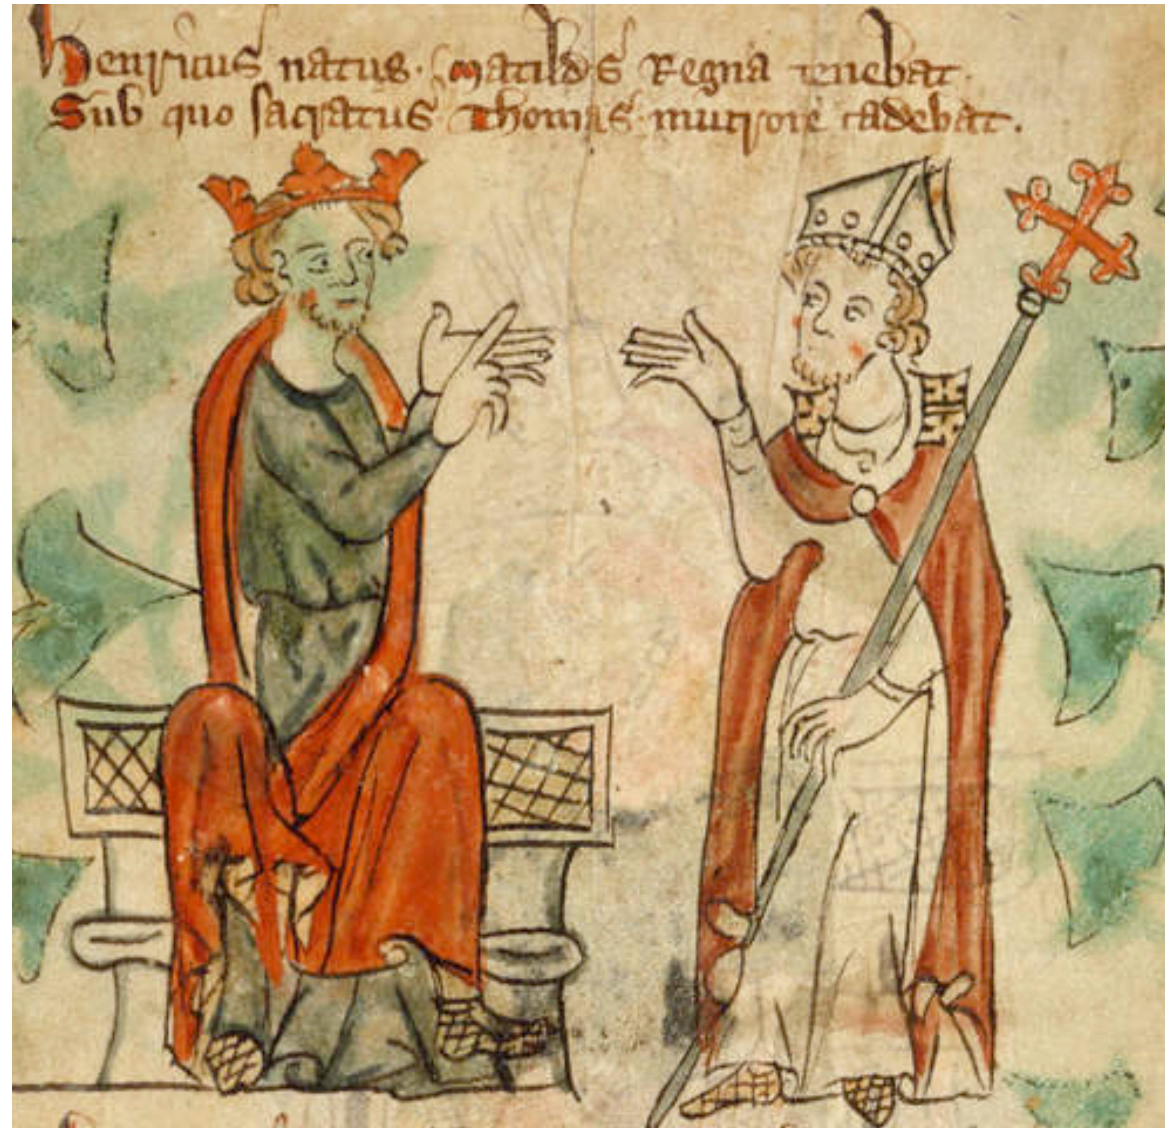 Henricus natus Matildis Regna tenebat.
Sub quo sacratus Thomas mucrone cadebat.